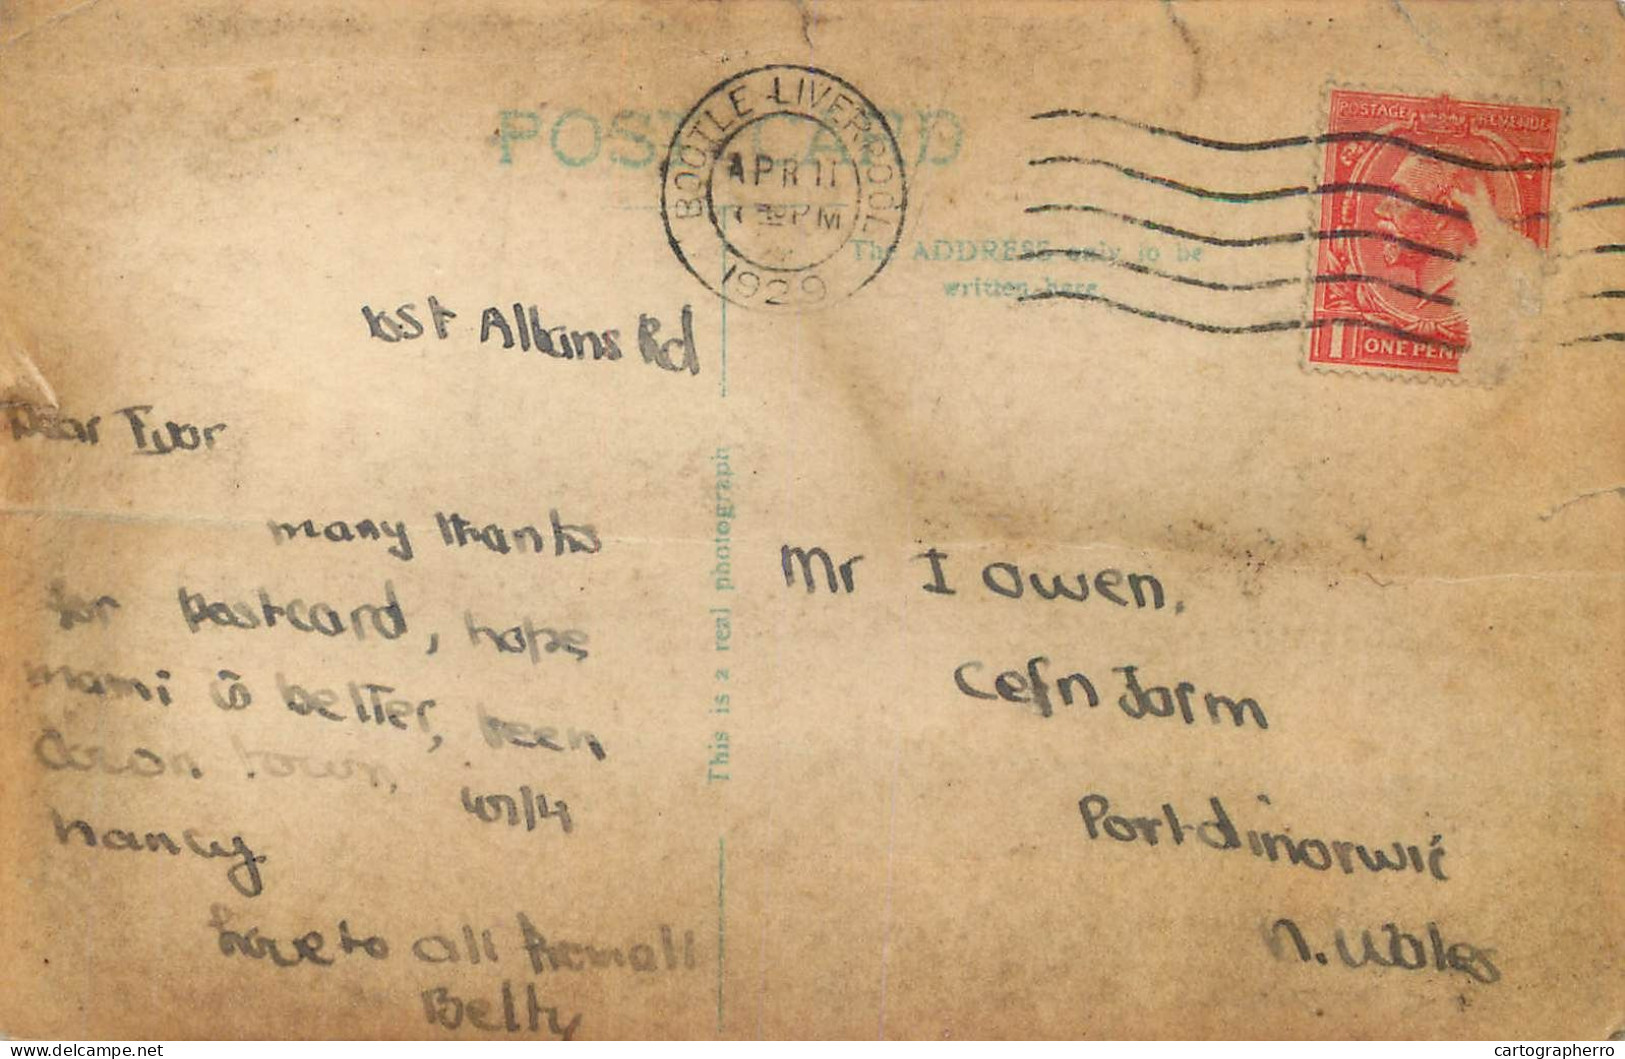 POST CARD
BOOTLE-LIVERPOOL
APR 11
PM
1929
POSTAGE REVENUE
1 ONE PEN
The ADDRESS only to be
written here
This is a real photograph
St Albans Rd
Dear Ivor
many thanks
for Postcard, hope
mami is better, been
down town, with
nancy
Love to all from all
Betty
Mr I owen,
Cefn Farm
Portdinorwic
N. Wales
delcampe.net
cartographerro